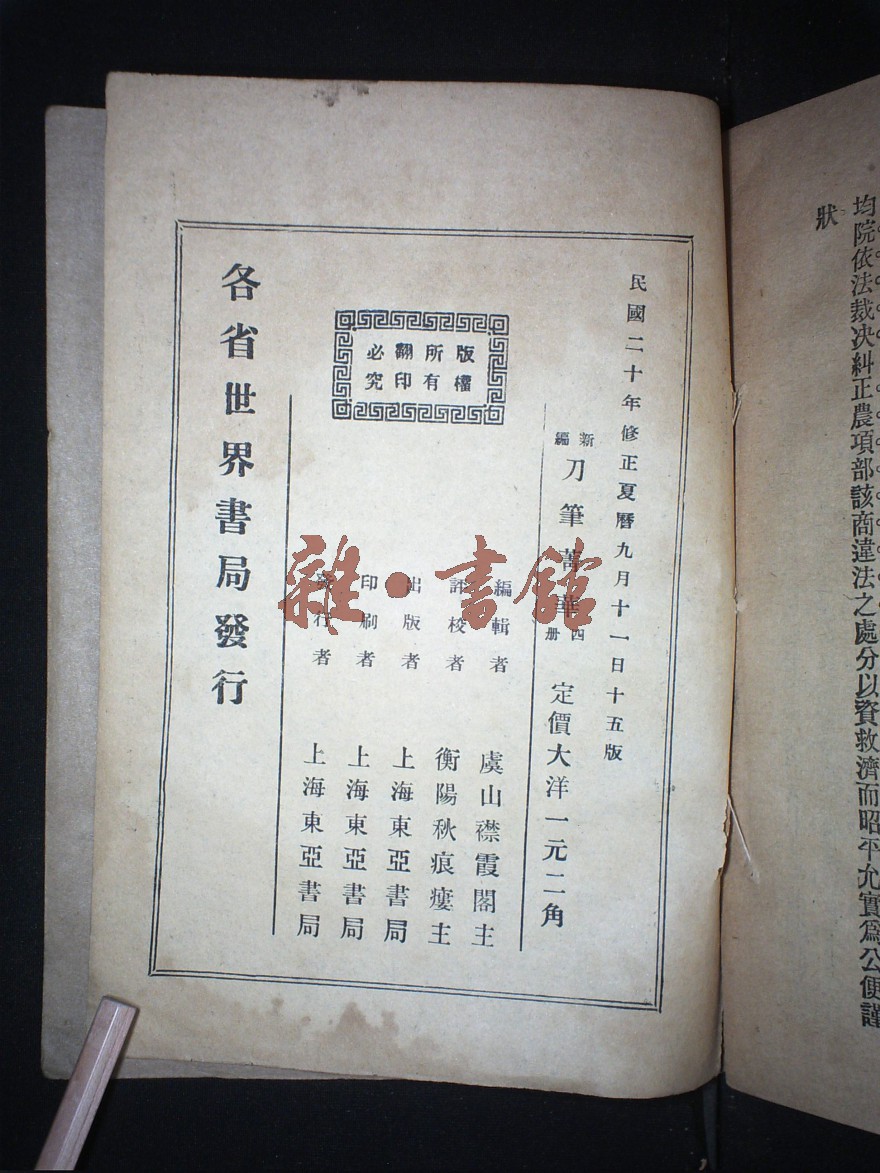 均院依法裁决糾正農項部該商違法之處分以資救濟而昭平允實爲公便謹
狀
民國二十年修正夏曆九月十一日十五版
新編刀筆菁華四册 定價大洋一元二角
版權所有翻印必究
編輯者 虞山襟霞閣主
評校者 衡陽秋痕廔主
出版者 上海東亞書局
印刷者 上海東亞書局
發行者 上海東亞書局
各省世界書局發行
雜·書館